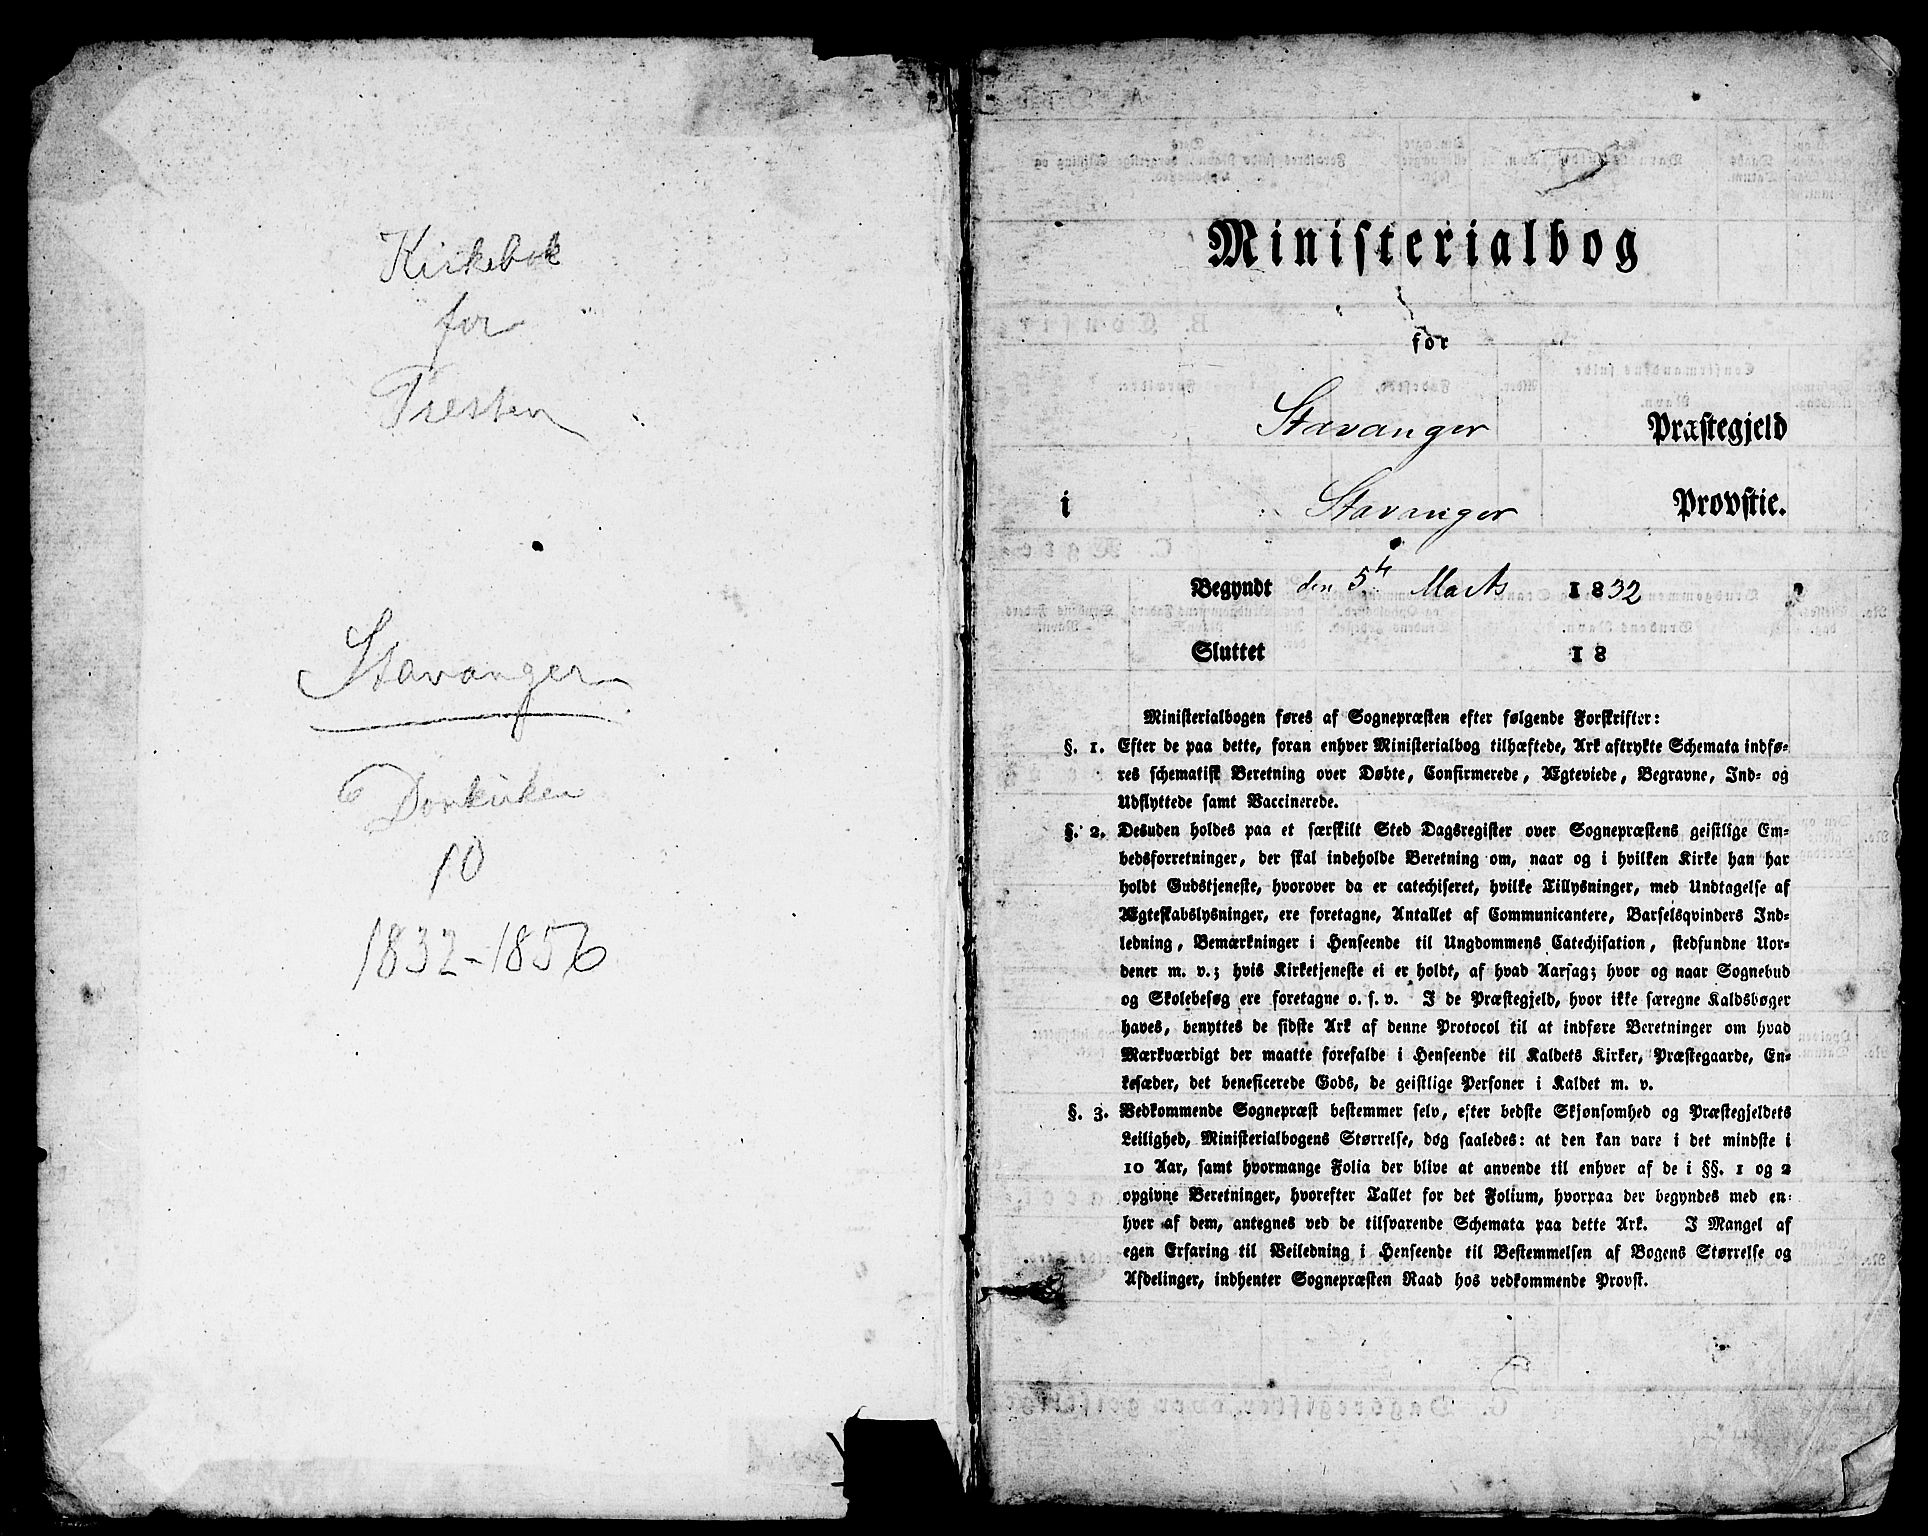 Kirkebok
for
Presten
Stavanger
Domkirken
10
1832-1856
Ministerialbog
for
Stavanger Præstegjeld
i Stavanger Provstie.
Begyndt den 5te Marts 1832
Sluttet 18
Ministerialbogen føres af Sognepræsten efter følgende Forskrifter:
§. 1. Efter de paa dette, foran enhver Ministerialbog tilhæftede, Ark aftrykte Schemata indfø-
res schematisk Beretning over Døbte, Confirmerede, Ægteviede, Begravne, Ind- og
Udflyttede samt Vaccinerede.
§. 2. Desuden holdes paa et særskilt Sted Dagsregister over Sognepræstens geistlige Em-
bedsforretninger, der skal indeholde Beretning om, naar og i hvilken Kirke han har
holdt Gudstjeneste, hvorover da er catechiseret, hvilke Tillysninger, med Undtagelse af
Ægteskabslysninger, ere foretagne, Antallet af Communicantere, Barselsqvinders Ind-
ledning, Bemærkninger i Henseende til Ungdommens Catechisation, stedfundne Uor-
dener m. v.; hvis Kirketjeneste ei er holdt, af hvad Aarsag; hvor og naar Sognebud
og Skolebesøg ere foretagne o. s. v. I de Præstegjeld, hvor ikke særegne Kaldsbøger
haves, benyttes de sidste Ark af denne Protocol til at indføre Beretninger om hvad
Mærkværdigt der maatte forefalde i Henseende til Kaldets Kirker, Præstegaarde, En-
kesæder, det beneficerede Gods, de geistlige Personer i Kaldet m. v.
§. 3. Vedkommende Sognepræst bestemmer selv, efter bedste Skjønsomhed og Præstegjeldets
Leilighed, Ministerialbogens Størrelse, dog saaledes: at den kan vare i det mindste i
10 Aar, samt hvormange Folia der blive at anvende til enhver af de i §§. 1 og 2
opgivne Beretninger, hvorefter Tallet for det Folium, hvorpaa der begyndes med en-
hver af dem, antegnes ved de tilsvarende Schemata paa dette Ark. I Mangel af
egen Erfaring til Veiledning i Henseende til Bestemmelsen af Bogens Størrelse og
Afdelinger, indhenter Sognepræsten Raad hos vedkommende Provst.